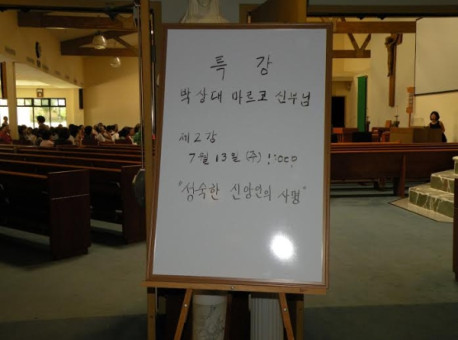 특 강
박상대 마르코 신부님
제2강
7월 13일 (주) 1:00
"성숙한 신앙인의 사명"